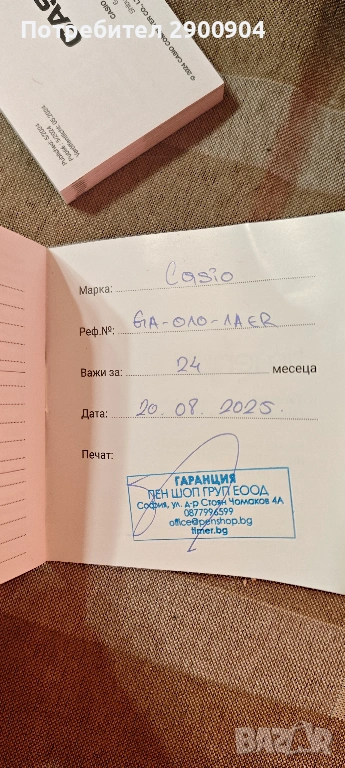 Потребител 2900904
© 2024 CASIO COMPUTER CO., LTD.
CASIO
CAS
Марка: Casio
Реф.№: GA-010-1AER
Важи за: 24 месеца
Дата: 20.08.2025.
Печат:
ГАРАНЦИЯ
ПЕН ШОП ГРУП ЕООД
София, ул. д-р Стоян Чомаков 4А
0877996599
office@penshop.bg
timer.bg
BAZAR